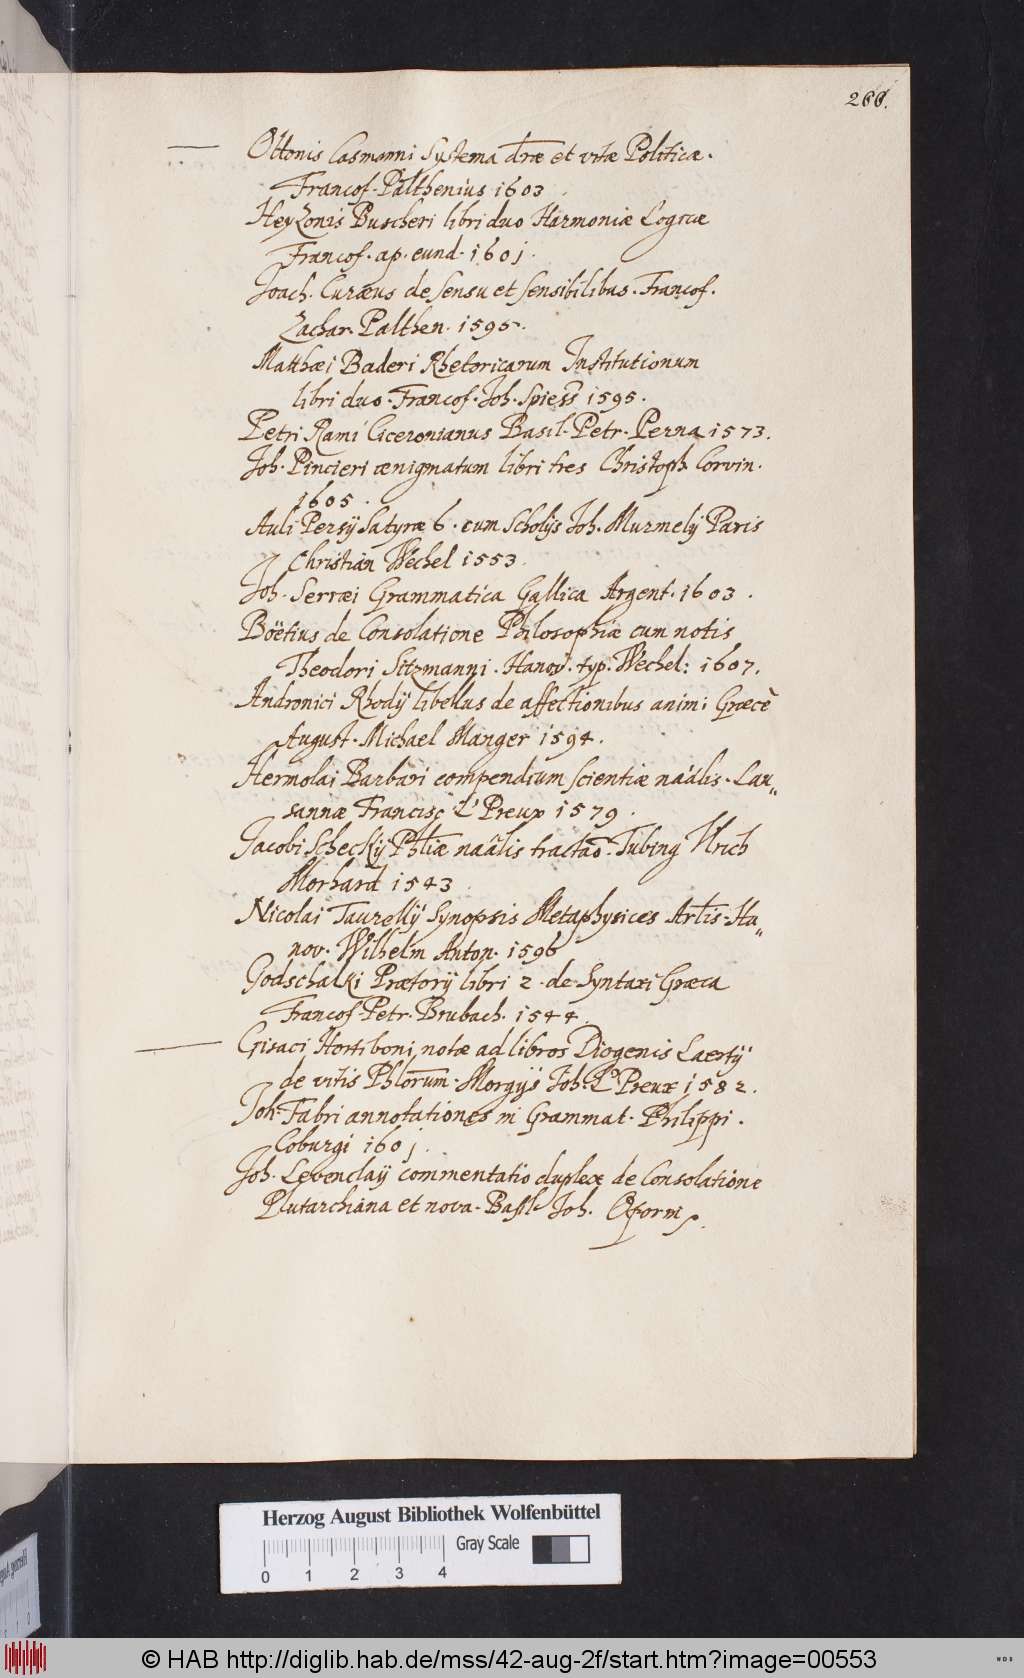 266.
Ottonis Casmanni Systema dr̄æ et vitæ Politicæ.
Francof. Palthenius 1603.
Heyzonis Buscheri libri duo Harmoniæ Logicæ
Francof. ap. eund. 1601.
Joach. Curæus de sensu et sensibilibus. Francof.
Zachar. Palthen. 1595.
Matthæi Baderi Rhetoricarum Institutionum
libri duo. Francof. Joh. Spiess 1595.
Petri Rami Ciceronianus Basil. Petr. Perna 1573.
Joh. Pincieri ænigmatum libri tres Christoph. Corvin.
1605.
Auli Persij Satyræ 6. cum Scholijs Joh. Murmelij Paris
Christian Wechel 1553.
Joh. Serræi Grammatica Gallica Argent. 1603.
Böëtius de Consolatione Philosophiæ cum notis
Theodori Sitzmanni. Hanov. typ. Wechel: 1607.
Andronici Rhodij libellus de affectionibus animi Græcè
August. Michael Manger 1594.
Hermolai Barbari compendium scientiæ nãalis. Lau„
sannæ Francisc. L' Preux 1579.
Jacobi Scheckij Phl̄iæ nãalis tractaō. Tubing Ulrich
Morhard 1543.
Nicolai Taurellij Synopsis Metaphysices Artl̄is. Ha„
nov. Wilhelm Anton. 1596
Godschalki Prætorij libri 2. de Syntaxi Græca
Francof. Petr. Brubach. 1544.
Gisaci Hortiboni notæ ad libros Diogenis Laertij
de vitis Phlorum̄. Morgijs Joh. L' Preux 1582.
Joh. Fabri annotationes in Grammat. Philippi.
Coburgi 1601.
Joh. Levenclaij commentatio duplex de Consolatione
Plutarchiana et nova. Basil. Joh. Oporin
Herzog August Bibliothek Wolfenbüttel
Gray Scale
0 1 2 3 4
© HAB http://diglib.hab.de/mss/42-aug-2f/start.htm?image=00553